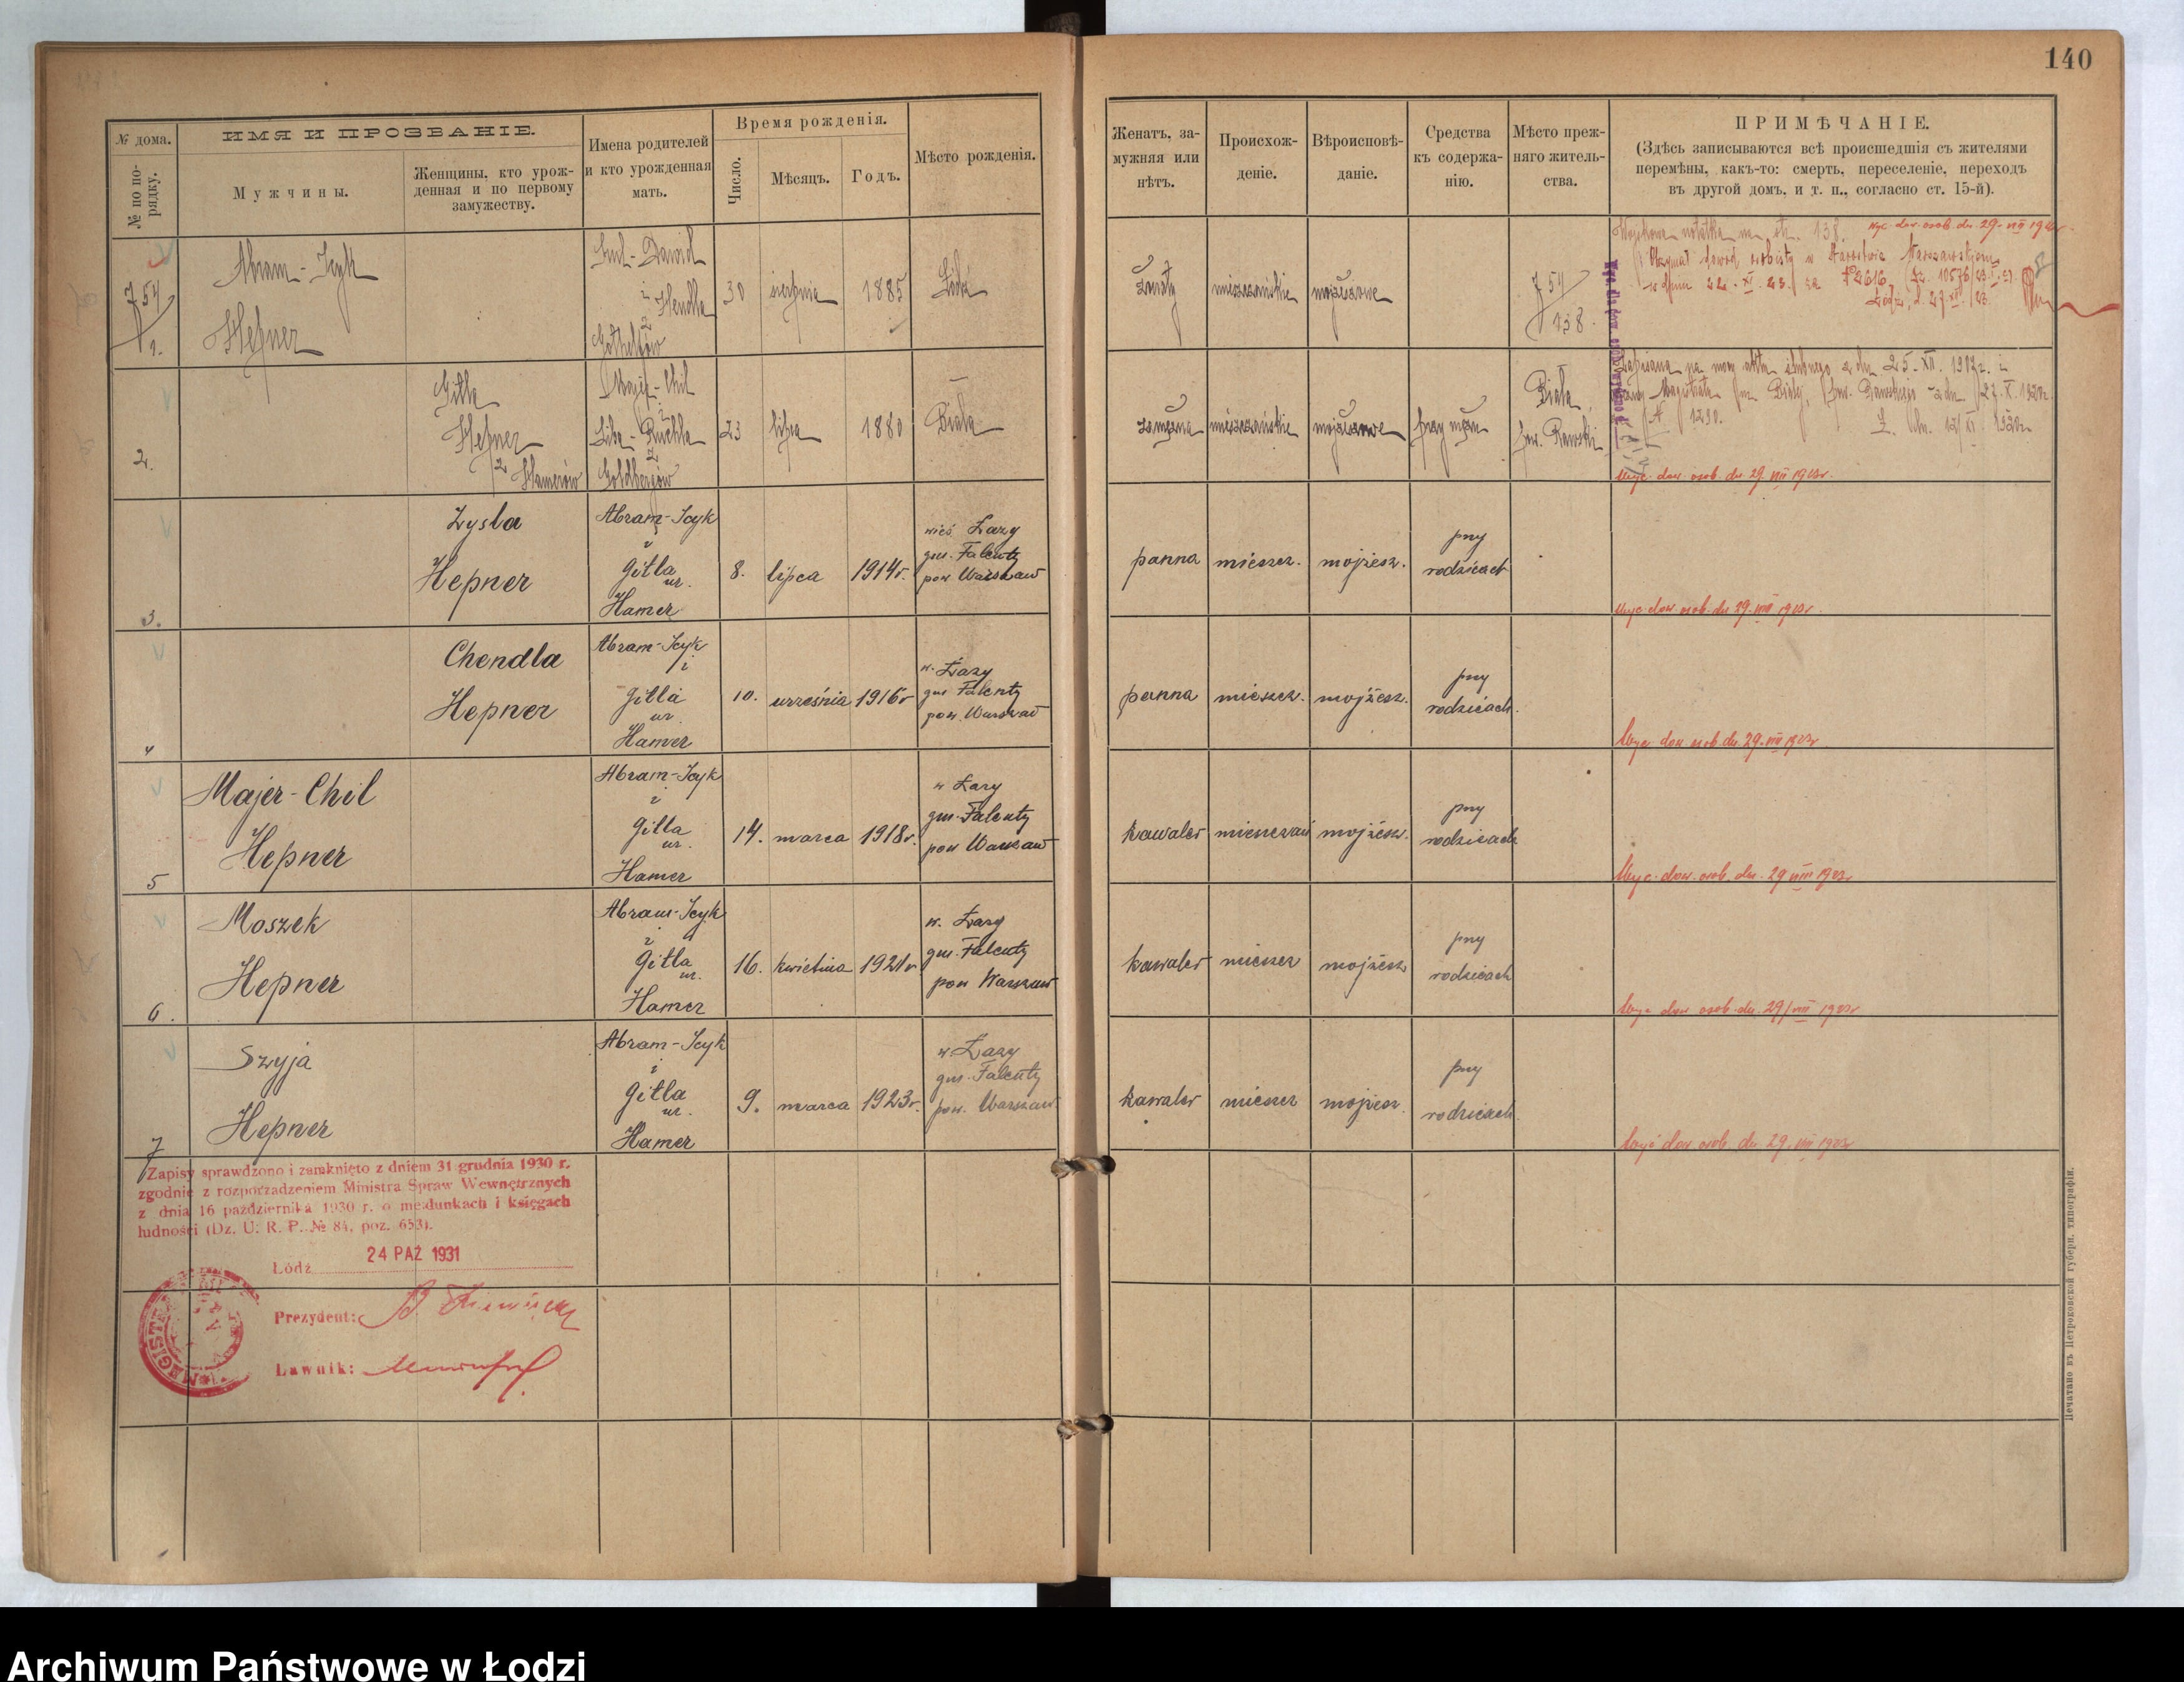 140
№ дома.
№ по по-
рядку.
ИМЯ И ПРОЗВАНІЕ.
Мужчины.
Женщины, кто урож-
денная и по первому
замужеству.
Имена родителей
и кто урожденная
мать.
Время рожденія.
Число.
Мѣсяцъ.
Годъ.
Мѣсто рожденія.
Женатъ, за-
мужняя или
нѣтъ.
Происхож-
деніе.
Вѣроисповѣ-
даніе.
Средства
къ содержа-
нію.
Мѣсто преж-
няго житель-
ства.
ПРИМѢЧАНІЕ.
(Здѣсь записываются всѣ происшедшія съ жителями
перемѣны, какъ-то: смерть, переселеніе, переходъ
въ другой домъ, и т. п., согласно ст. 15-й).
754
1.
Abram-Icyk
Hepner
Dawid
i Hendla
z
30
sierpnia
1885
żonaty
mieszczańskie
mojżeszowe
754
138.
138.
dow. osob. dn. 29. VIII 19
Otrzymał dowód osobisty w Starostwie Warszawskiem
w dniu 22. XI. 23. za
2.
Gitla
Hepner
z Hamerów
Majer-Chil
i
Liba-Ruchla
z
Goldbergów
23
lipca
1880
Biała
zamężna
mieszczańskie
mojżeszowe
przy mężu
Biała
pow. Rawski
Zapisana na mocy aktu ślubnego z dn. 25. XII. 1912r. i
Magistratu gm. Biały, pow. Rawskiego z dn. 27. X. 1920r.
№ 1290.
Wyc. dow. osob. dn. 29. VIII 1923r.
3.
Zysla
Hepner
Abram-Icyk
i
Gitla
ur.
Hamer
8.
lipca
1914r.
wieś Łazy
gm. Falenty
pow Warszaw
panna
mieszcz.
mojżesz.
przy
rodzicach
Wyc. dow. osob. dn. 29. VIII 1923r.
4
Chendla
Hepner
Abram-Icyk
i
Gitla
ur.
Hamer
10.
września
1916r
w. Łazy
gm Falenty
pow. Warszaw
panna
mieszcz.
mojżesz.
przy
rodzicach.
Wyc. dow. osob. dn. 29. VIII 1923r
5
Majer-Chil
Hepner
Abram-Icyk
i
Gitla
ur.
Hamer
14.
marca
1918r.
w Łazy
gm. Falenty
pow Warszaw
kawaler
mieszczań
mojżesz.
przy
rodzicach
Wyc. dow. osob. dn. 29 VIII 1923r
6.
Moszek
Hepner
Abram-Icyk
i
Gitla
ur.
Hamer
16.
kwietnia
1921r
w. Łazy
gm. Falenty
pow Warszaw
kawaler
mieszcz
mojżesz
przy
rodzicach
Wyc dow osob. dn. 29/VIII 1923r
7
Szyja
Hepner
Abram-Icyk
i
Gitla
ur.
Hamer
9.
marca
1923r.
w. Łazy
gm. Falenty
pow. Warszaw
kawaler
mieszcz
mojżesz.
przy
rodzicach
Wyc dow. osob. dn 29. VIII 1923r
Zapisy sprawdzono i zamknięto z dniem 31 grudnia 1930 r.
zgodnie z rozporządzeniem Ministra Spraw Wewnętrznych
z dnia 16 października 1930 r. o meldunkach i księgach
ludności (Dz. U. R. P. № 84, poz. 653).
Łódź
24 PAŹ 1931
Prezydent:
Ławnik:
Печатано въ Петроковской губерн. типографіи.
Archiwum Państwowe w Łodzi